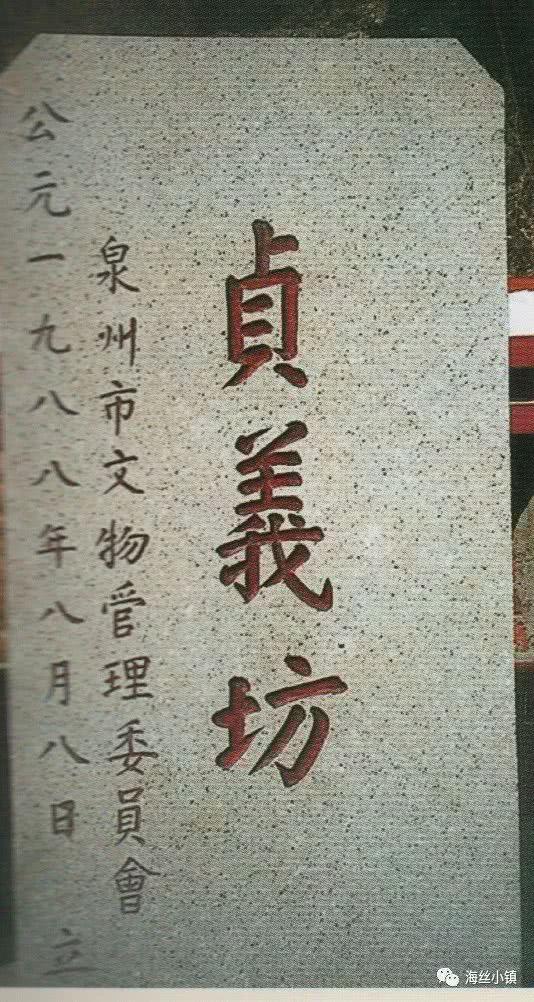 貞義坊
泉州市文物管理委員會
公元一九八八年八月八日 立
海丝小镇